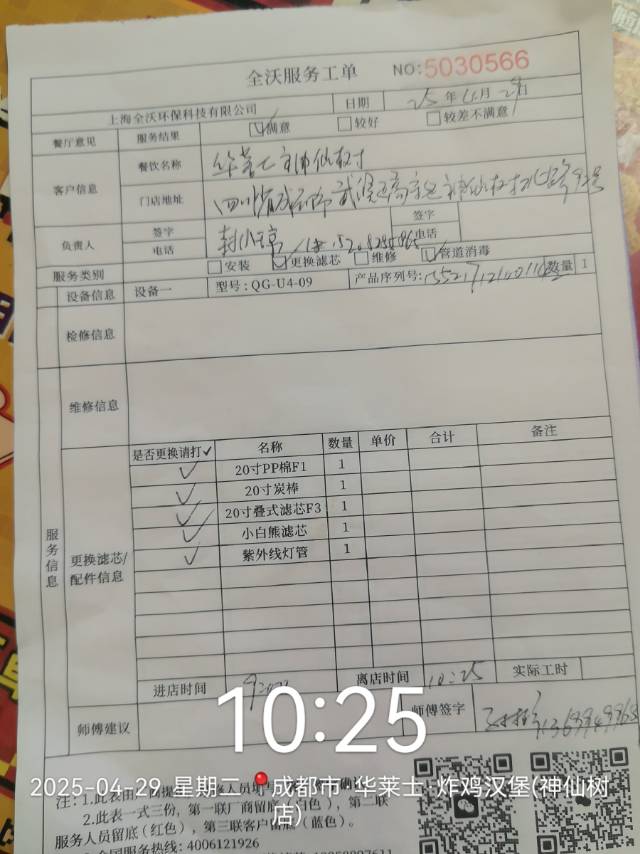 全沃服务工单 NO:5030566
上海全沃环保科技有限公司 日期 25年 月29日
餐厅意见 服务结果 ☑满意 □较好 □较差不满意
客户信息 餐饮名称 华莱士
门店地址 四川省成都市武侯区高新区神仙树
负责人 签字 签字
电话 电话
服务类别 □安装 ☑更换滤芯 □维修 ☑管道消毒
设备信息 设备一 型号:QG-U4-09 产品序列号: 数量 1
检修信息
维修信息
服务信息
更换滤芯/配件信息
是否更换请打✓ 名称 数量 单价 合计 备注
✓ 20寸PP棉F1 1
✓ 20寸炭棒 1
✓ 20寸叠式滤芯F3 1
✓ 小白熊滤芯 1
✓ 紫外线灯管 1
进店时间 离店时间 10:25 实际工时
师傅建议 师傅签字
10:25
2025-04-29 星期二 成都市·华莱士·炸鸡汉堡(神仙树店)
注:1.此表由
2.此表一式三份,第一联厂商留底(白色),第二联
服务人员留底(红色),第三联客户留底(蓝色)。
全国服务热线:4006121926